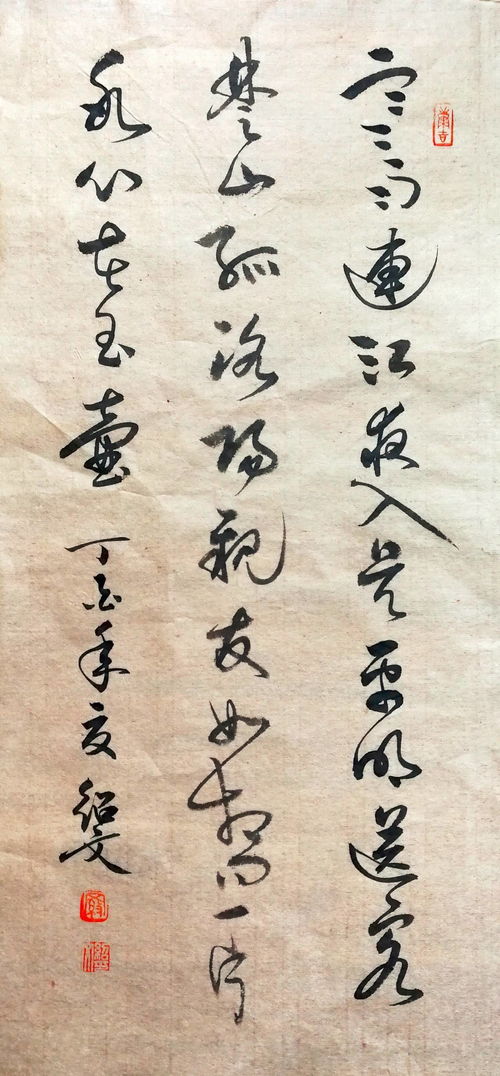 寒雨連江夜入吳平明送客
楚山孤洛陽親友如相問一片
冰心在玉壺 丁酉年夏 紹文